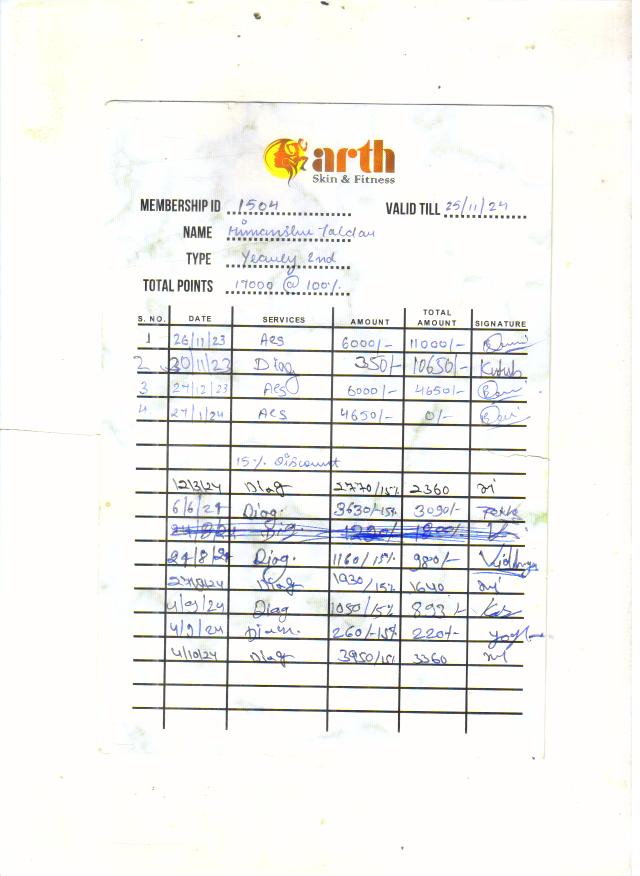 arth
Skin & Fitness
MEMBERSHIP ID 1504 VALID TILL 25/11/24
NAME Himanshu
TYPE Yearly 2nd
TOTAL POINTS 17000 @ 100%
S. NO. DATE SERVICES AMOUNT TOTAL AMOUNT SIGNATURE
1 26/11/23 Aes 6000/- 11000/-
2 30/11/23 Diag 350/- 10650/-
3 27/12/23 Aes 6000/- 4650/-
4 27/1/24 Aes 4650/- 0/-
15% Discount
12/3/24 Diag 2770/15% 2360
6/6/24 Diag. 3630/-15% 3090/-
24/8/24 Diag. 1160/15% 980/- Vidhya
27/8/24 Diag 1930/15% 1640
4/9/24 Diag 1050/15% 893/-
4/9/24 260/-15% 220/-
4/10/24 Diag 3950/15% 3360